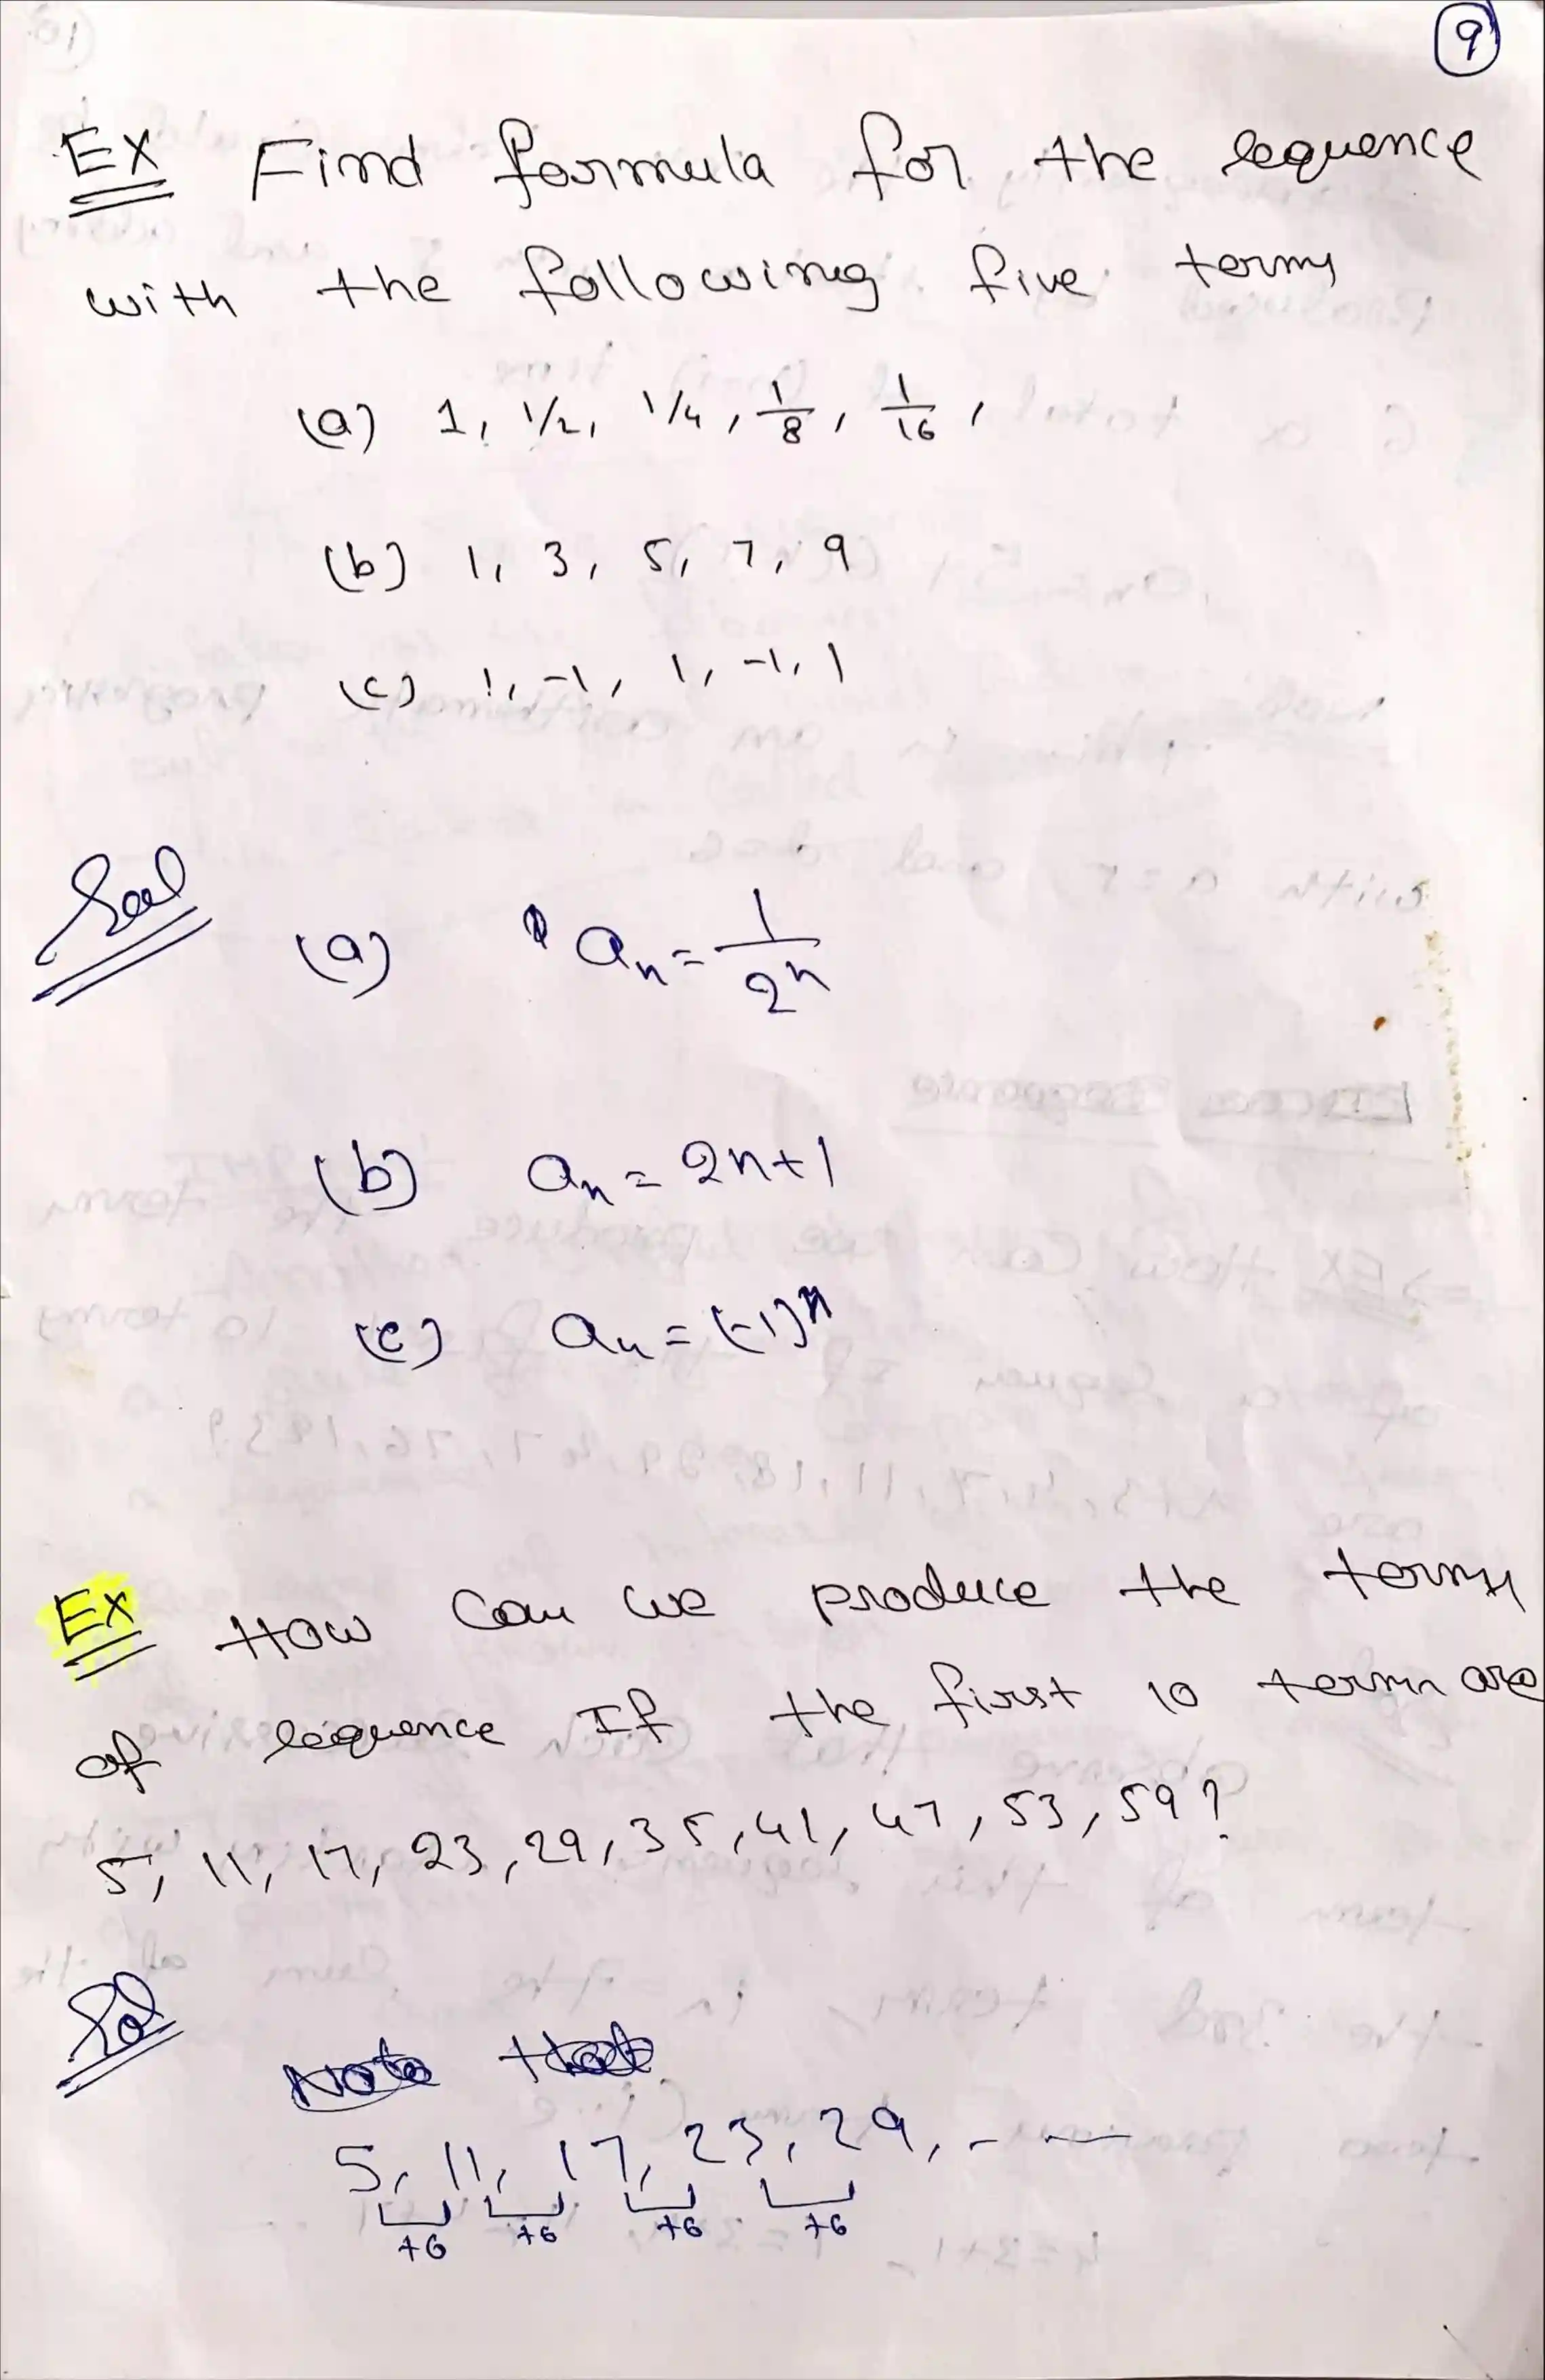 9
EX Find formula for the sequence
with the following five terms
(a) 1, 1/2, 1/4, 1/8, 1/16,
(b) 1, 3, 5, 7, 9
(c) 1, -1, 1, -1, 1
Sol
(a) aₙ = 1/2ⁿ
(b) aₙ = 2n+1
(c) aₙ = (-1)ⁿ
EX How can we produce the terms
of sequence If the first 10 terms are
5, 11, 17, 23, 29, 35, 41, 47, 53, 59?
Sol
Note that
5, 11, 17, 23, 29, - —
+6 +6 +6 +6